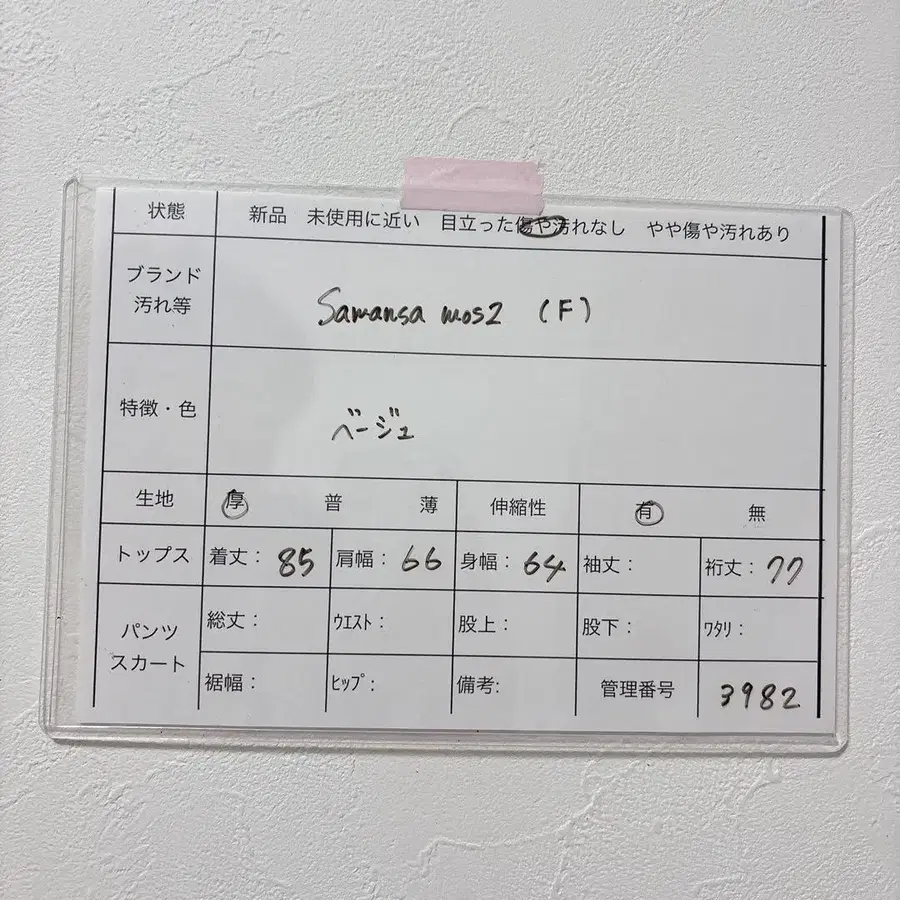 状態 新品 未使用に近い 目立った傷や汚れなし やや傷や汚れあり
ブランド
汚れ等
Samansa mos2 (F)
特徴・色 ベージュ
生地 厚 普 薄 伸縮性 有 無
トップス 着丈： 85 肩幅： 66 身幅： 64 袖丈： 裄丈： 77
パンツ
スカート
総丈： ｳｴｽﾄ： 股上： 股下： ﾜﾀﾘ：
裾幅： ﾋｯﾌﾟ： 備考: 管理番号 3982